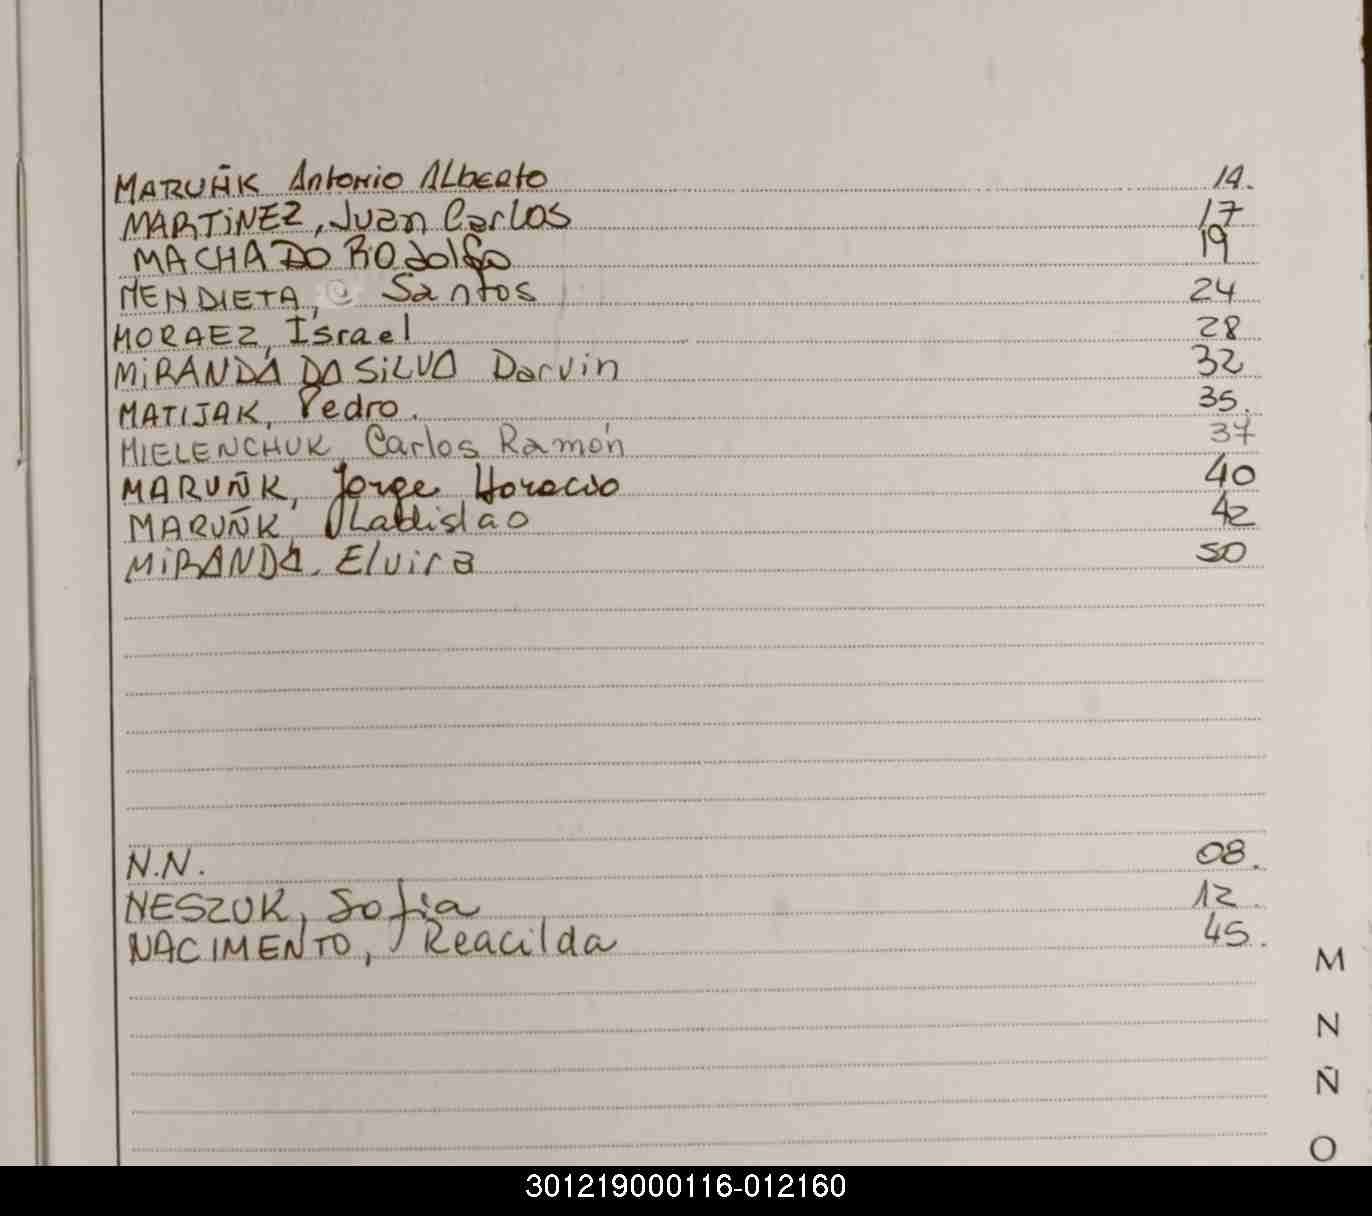 MARUÑK Antonio Alberto 14.
MARTiNEZ, Juan Carlos 17
MACHADO RODolfo 19
MENDIETA, Santos 24
MORAEZ, Israel 28
MiRANDA DA SiLVA Darvin 32
MATIJAK, Pedro. 35.
MIELENCHUK, Carlos Ramón 37
MARUÑK, Jorge Horacio 40
MARUÑK, Ladislao 42
MiRANDA, Elvira 50
N.N. 08.
NESZUK, Sofia 12.
NACIMENTO, Reacilda 45.
M
N
Ñ
O
301219000116-012160